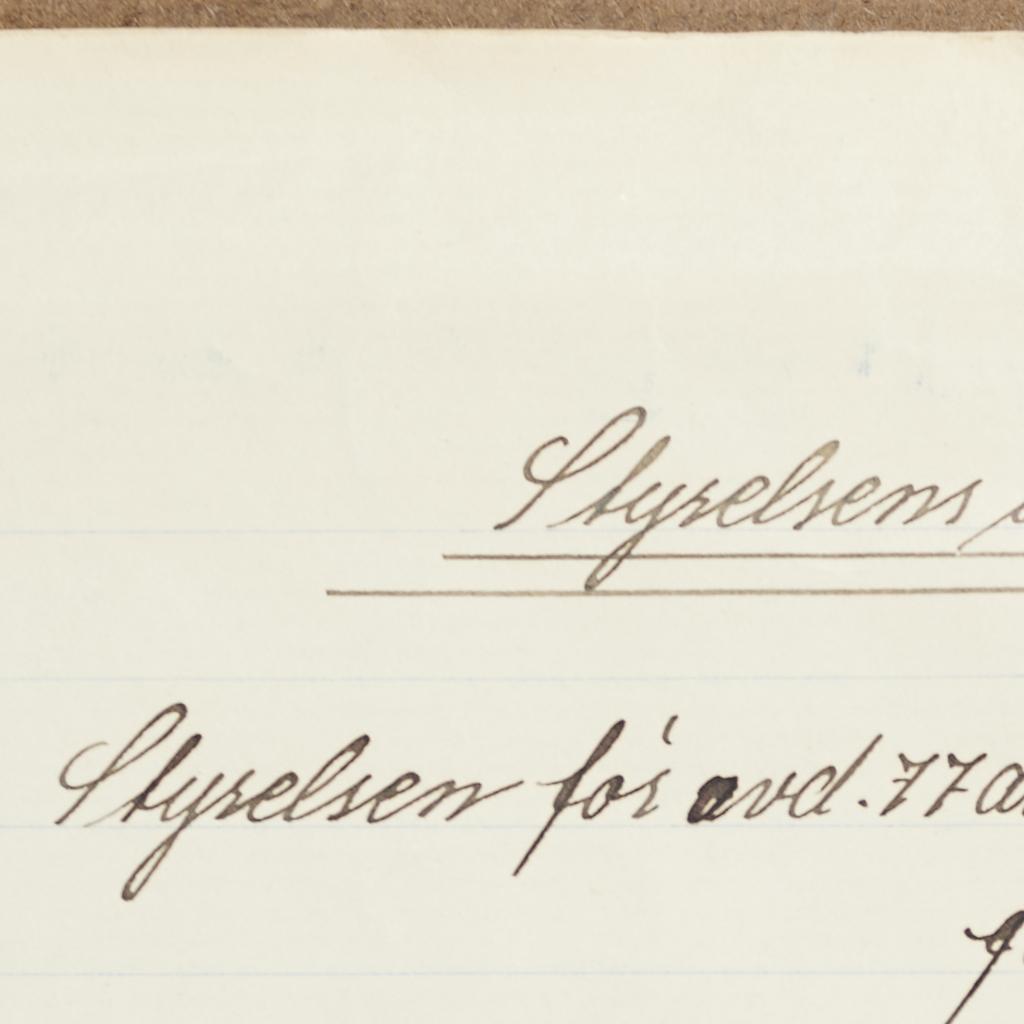 Styrelsens
Styrelsen för avd. 77